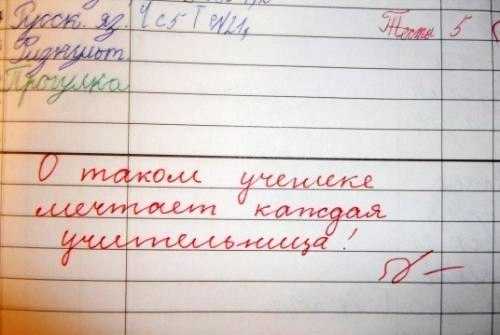 Русск. яз. Ч с5 Т №21, Тесты 5
Физкульт.
Прогулка
О таком ученике
мечтает каждая
учительница!